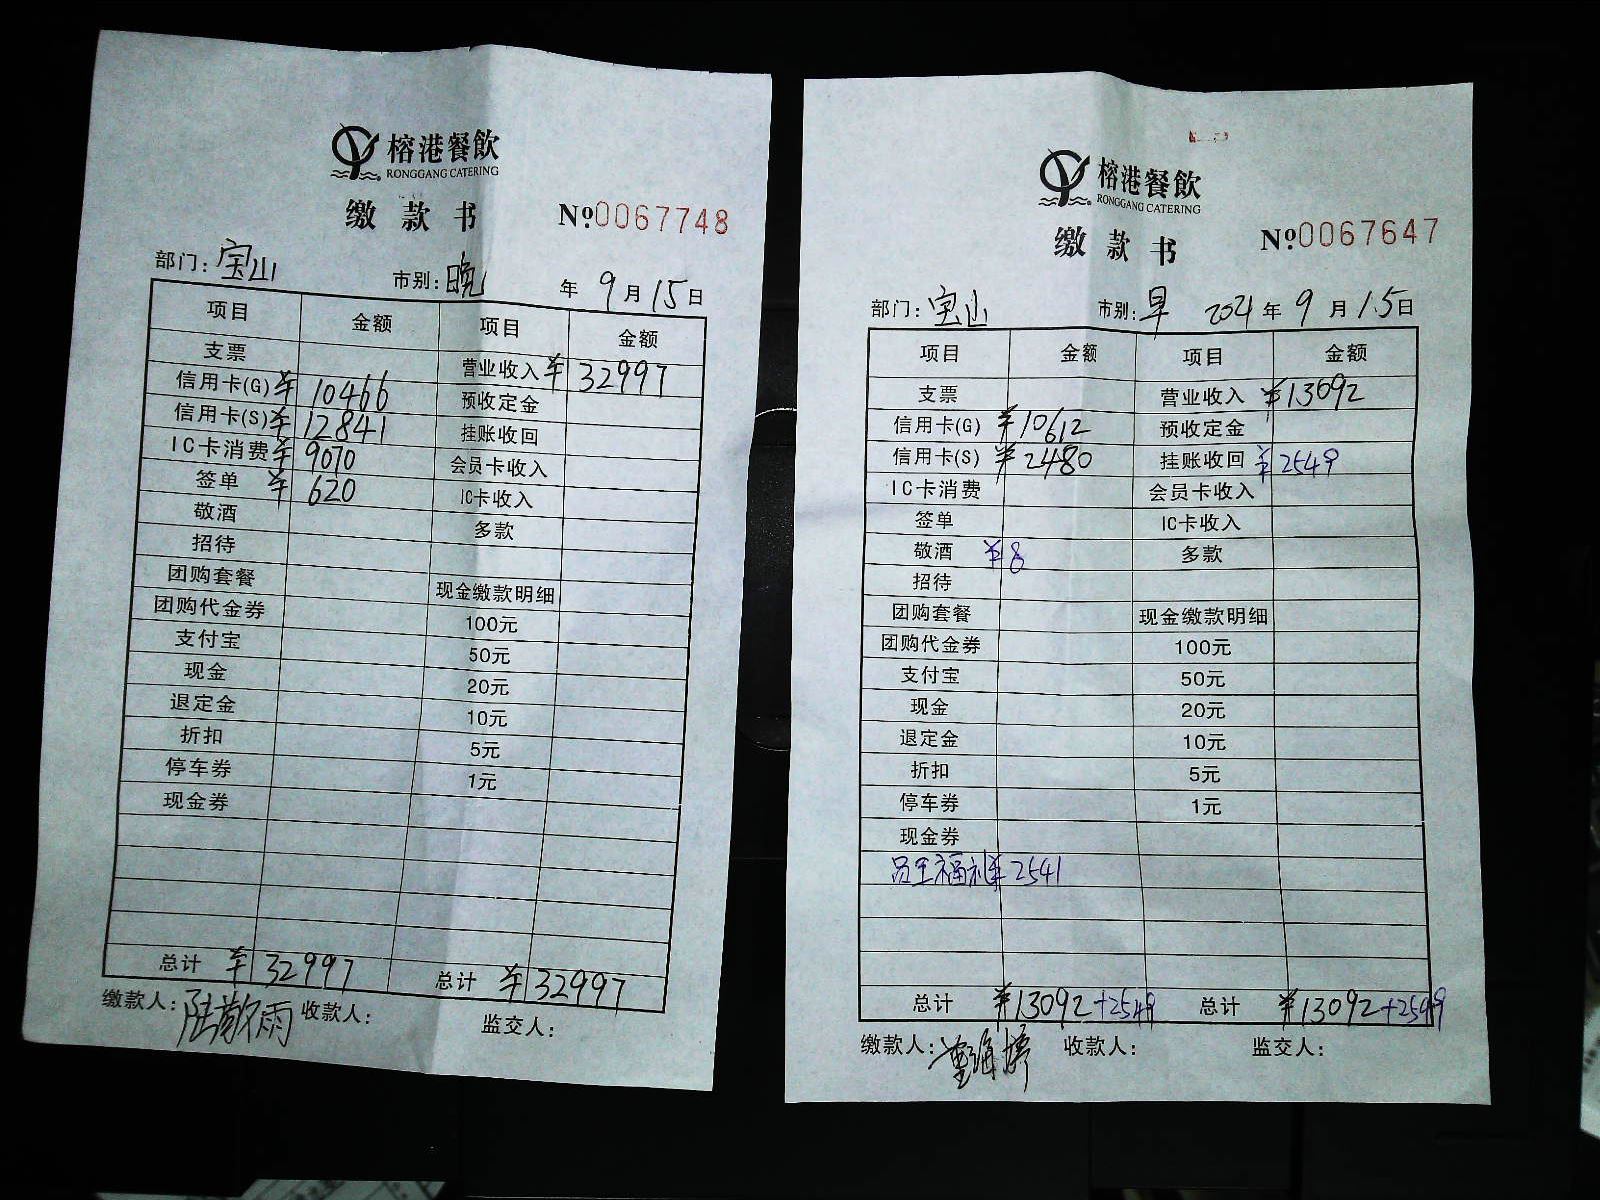 榕港餐飲
RONGGANG CATERING
缴款书 №0067748
部门: 宝山 市别: 晚 年 9 月 15 日
项目 金额 项目 金额
支票 营业收入 ¥32997
信用卡(G) ¥10466 预收定金
信用卡(S) ¥12841 挂账收回
IC卡消费 ¥9070 会员卡收入
签单 ¥620 IC卡收入
敬酒 多款
招待
团购套餐 现金缴款明细
团购代金券 100元
支付宝 50元
现金 20元
退定金 10元
折扣 5元
停车券 1元
现金券
总计 ¥32997 总计 ¥32997
缴款人: 陆敬雨 收款人: 监交人:
榕港餐飲
RONGGANG CATERING
缴款书 №0067647
部门: 宝山 市别: 早 2021 年 9 月 15 日
项目 金额 项目 金额
支票 营业收入 ¥13092
信用卡(G) ¥10612 预收定金
信用卡(S) ¥2480 挂账收回 ¥2549
IC卡消费 会员卡收入
签单 IC卡收入
敬酒 ¥8 多款
招待
团购套餐 现金缴款明细
团购代金券 100元
支付宝 50元
现金 20元
退定金 10元
折扣 5元
停车券 1元
现金券
员工福利 ¥2541
总计 ¥13092+2549 总计 ¥13092+2549
缴款人: 收款人: 监交人: